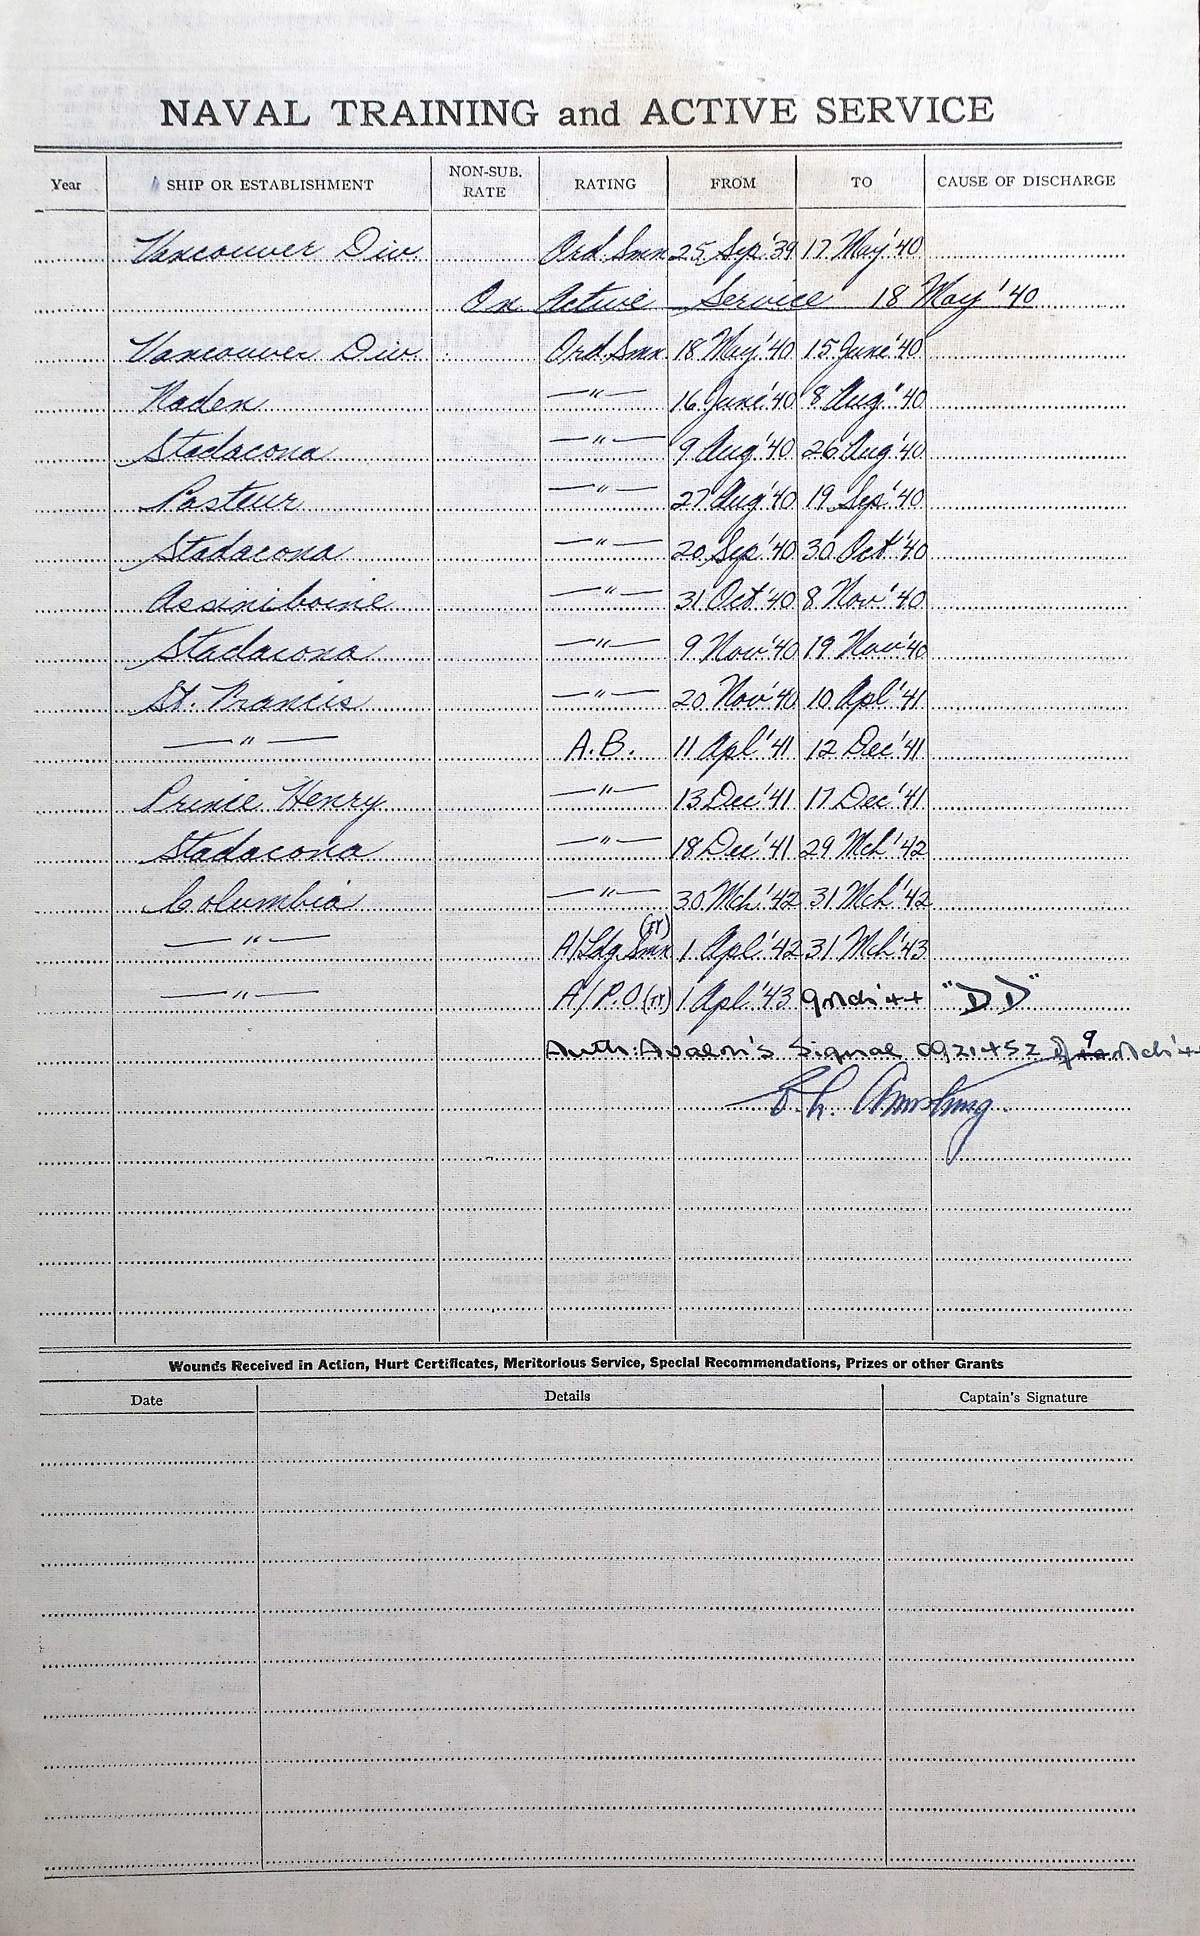 NAVAL TRAINING and ACTIVE SERVICE
Year SHIP OR ESTABLISHMENT NON-SUB. RATE RATING FROM TO CAUSE OF DISCHARGE
Vancouver Div. Ord. Smn 25 Sep '39 17 May '40
On Active Service 18 May '40
Vancouver Div. Ord. Smn 18 May '40 15 June '40
Naden —"— 16 June '40 8 Aug '40
Stadacona —"— 9 Aug '40 26 Aug '40
Pasteur —"— 27 Aug '40 19 Sep '40
Stadacona —"— 20 Sep '40 30 Oct '40
Assiniboine —"— 31 Oct '40 8 Nov '40
Stadacona —"— 9 Nov '40 19 Nov '40
St. Francis —"— 20 Nov '40 10 Apl '41
—"— A.B. 11 Apl '41 12 Dec '41
Prince Henry —"— 13 Dec '41 17 Dec '41
Stadacona —"— 18 Dec '41 29 Mch '42
Columbia —"— 30 Mch '42 31 Mch '42
—"— A/Ldg Smn (TY) 1 Apl '42 31 Mch '43
—"— A/P.O (TY) 1 Apl '43 9 Mch '44 "DD"
Auth: Avalon's Signal 092145Z of 9 Mch '44
Armstrong
Wounds Received in Action, Hurt Certificates, Meritorious Service, Special Recommendations, Prizes or other Grants
Date Details Captain's Signature